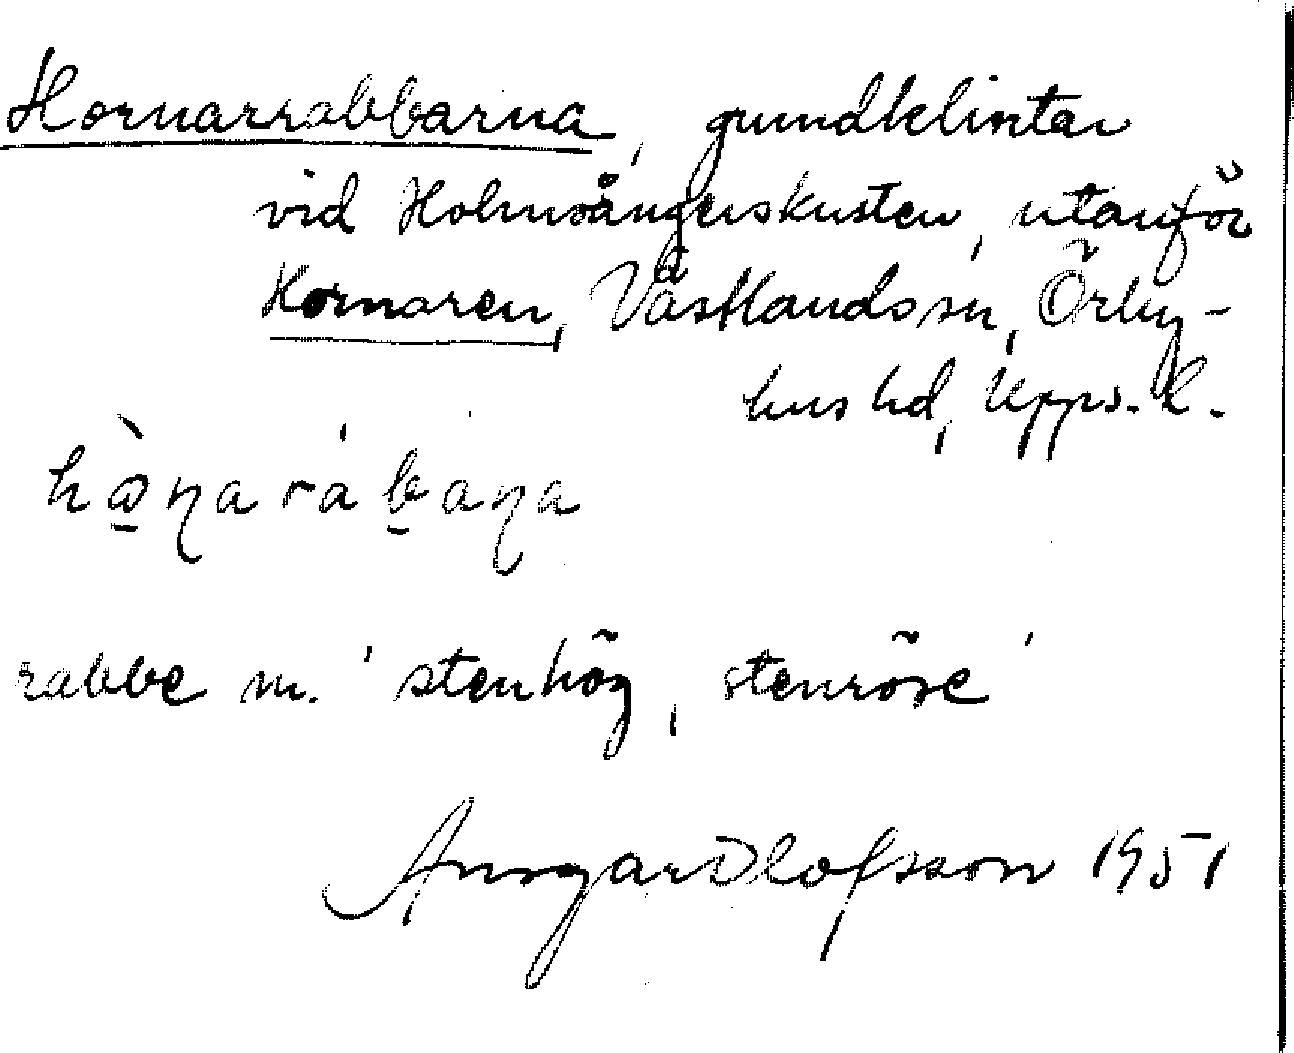 Hornarrabbarna, grundklintar
vid Holmsångerskusten, utanför
Hornaren, Västlands sn, Örby-
hus hd, Upps. l.
hὰ̠ɳa rá b̠aɳa
rabbe m. 'stenhög, stenröse'
Ansgar Olofsson 1951